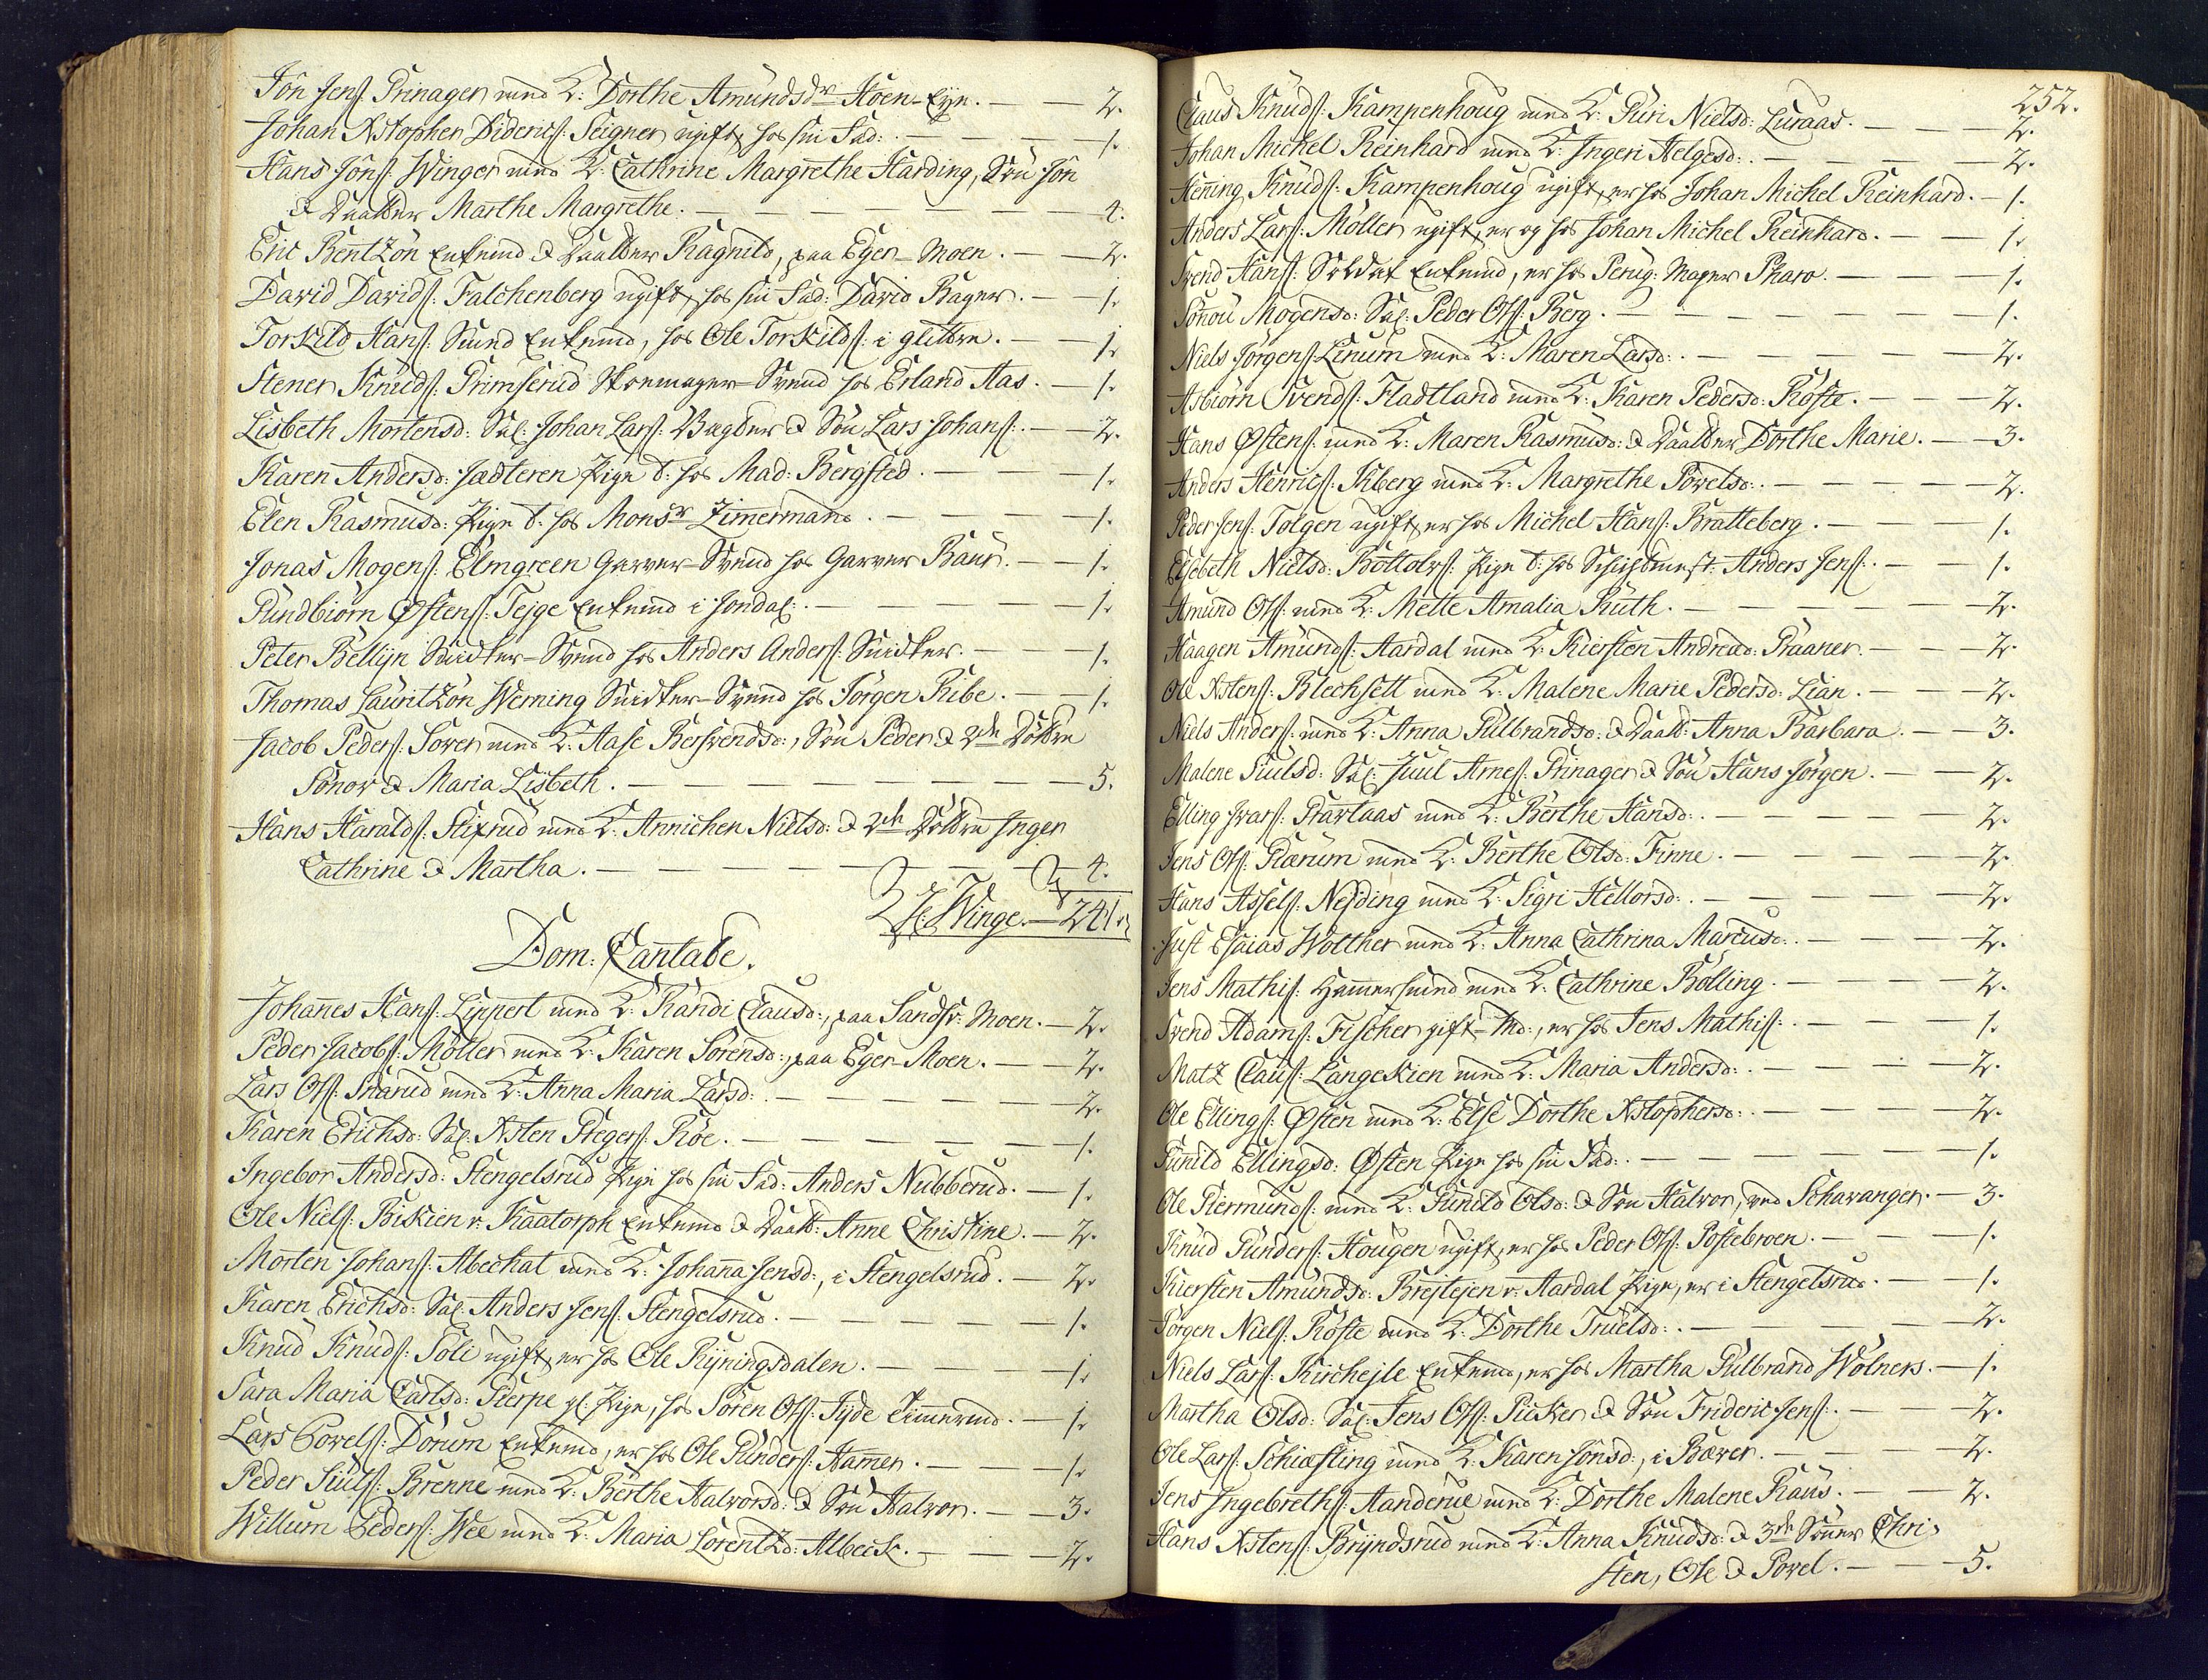 Jôn Jens: Prinager med K: Dorthe Amundsdr Hoen-Eye. — — 2.
Johan Xstopher Diderics: Seigner ugift, hos sin Fad: — — 1.
Hans Jôns: Winger med K: Cathrine Margrethe Harding, Sön Jôn
& Daatter Marthe Margrethe. — — 4.
Eric Bentzön Enkemd & Daatter Ragnild, paa Eger-Moen. — 2.
David Davids: Falchenberg ugift, hos sin Fad: David Bager. — 1.
Torkild Hans: Smed Enkemd, hos Ole Torkilds: i glitteren. — 1.
Stener Knuds: Grimserud Skoemager-Svend hos Erland Aas. — 1.
Lisbeth Mortensd: Sal: Johan Lars: Bøgder & Sön Lars Johans: — 2.
Karen Andersd: Jædteren Pige t: hos Mad: Bergsted. — 1.
Elen Rasmusd: Pige t: hos Monsr Zimermand. — 1.
Jonas Mogens: Elmgreen Garver-Svend hos Garver Baur. — 1.
Gundbiörn Østens: Tejge Enkemd i Jondal: — 1.
Peter Bellijn Snidker-Svend hos Anders Anders: Snidker. — 1.
Thomas Lauritzön Werning Snidker-Svend hos Jörgen Ribe. — 1.
Jacob Peders: Sover med K: Aase Bersvendsd:, Sön Peder & 2de Döttre
Gönor & Maria Lisbeth. — — 5.
Hans Haralds: Stixrud med K: Annichen Nielsd: & 2de Döttre Inger
Cathrine & Martha. — — 4.
H: Winge. — 241.
Dom: Cantate.
Johannes Hans: Lippert med K: Randi Clausd:, paa Sandsv: Moen. — 2.
Peder Jacobs: Möller med K: Karen Sörensd: paa Eger-Moen. — 2.
Lars Ols: Snarud med K: Anna Maria Larsd: — 2.
Karen Erichsd: Sal: Xsten Gregers: Röe. — 1.
Ingebor Andersd: Stengelsrud Pige hos sin Fad: Anders Nubberud. — 1.
Ole Niels: Biskien v. Kaatorph Enkemd & Daatt: Anne Christine. — 2.
Morten Johans: Abechat med K: Johanna Jensd:, i Stengelsrud. — 2.
Karen Erichsd: Sal: Anders Jens: Stengelsrud. — 1.
Knud Knuds: Soli ugift, er hos Ole Ryningsdalen. — 1.
Sara Maria Carlsd: Gierpe gl: Pige, hos Sören Ols: Fyde Timermd. — 1.
Lars Povels: Dörum Enkemd, er hos Ole Gunders: Hamer. — 1.
Peder Siuls: Brenne med K: Berthe Halvorsd: & Sön Halvor. — 3.
Willum Peders: Wee med K: Maria Lorentzd: Albeck. — 2.
252.
Claus Knuds: Kampenhoug med K: Guri Nielsd: Luraas. — 2.
Johan Michel Reinhard med K: Ingeri Helgesd: — 2.
Hening Knuds: Kampenhoug ugift, er hos Johan Michel Reinhard. — 1.
Anders Lars: Möller ugift, er og hos Johan Michel Reinhard. — 1.
Svend Hans: Soldat Enkemd, er hos Peruq: Mager Pharo. — 1.
Gönou Mogensd: Sal: Peder Ols: Berg. — 1.
Niels Jörgens: Linum med K: Maren Larsd: — 2.
Asbiörn Svends: Fladtland med K: Karen Pedersd: Röste. — 2.
Hans Østens: med K: Maren Rasmusd: & Daatter Dorthe Marie. — 3.
Anders Henrics: Kberg med K: Margrethe Povelsd: — 2.
Peder Jens: Tolgen ugift, er hos Michel Hans: Bratteberg. — 1.
Elsebeth Nielsd: Bottolvs: Pige t: hos Schichtmest: Anders Jens: — 1.
Amund Ols: med K: Mette Amalia Ruth. — 2.
Haagen Amunds: Aardal med K: Kiersten Andread: Raaner. — 2.
Ole Xstens: Blechsett med K: Malene Marie Pedersd: Lian. — 2.
Niels Anders: med K: Anna Gulbrandsd: & Daatt: Anna Barbara. — 3.
Malene Siulsd: Sal: Juul Arnes: Prinager & Sön Hans Jörgen. — 2.
Elling Ivars: Gravlaas med K: Berthe Hansd: — 2.
Jens Ols: Rærum med K: Berthe Olsd: Finne. — 2.
Hans Assels: Nejding med K: Sigri Hellorsd: — 2.
Just Esaias Wolther med K: Anna Cathrina Marcusd: — 2.
Jens Mathis: Hamersmed med K: Cathrine Bölling. — 2.
Svend Adams: Fischer gift-Md:, er hos Jens Mathis: — 1.
Matz Claus: Langekien med K: Maria Andersd: — 2.
Ole Ellings: Østen med K: Else Dorthe Xstophersd: — 2.
Gunild Ellingsd: Østen Pige hos sin Fad: — 1.
Ole Giermunds: med K: Gunild Olsd: & Sön Halvor, ved Schavanger. — 3.
Knud Gunders: Hougen ugift, er hos Peder Ols: Fossebroen. — 1.
Kiersten Amundsd: Brejtejen v. Aardal Pige, er i Stengelsrud. — 1.
Jörgen Niels: Röste med K: Dorthe Truelsd: — 2.
Niels Lars: Kirchejle Enkemd, er hos Martha Gulbrand Wolners. — 1.
Martha Olsd: Sal: Jens Ols: Picker & Sön Frideric Jens: — 2.
Ole Lars: Schiæsting med K: Karen Jônsd:, i Bæver. — 2.
Jens Ingebreths: Aanderue med K: Dorthe Malene Raus. — 2.
Hans Xstens: Bryndsrud med K: Anna Knudsd: & 3de Sönner Chri-
sten, Ole & Povel. — 5.